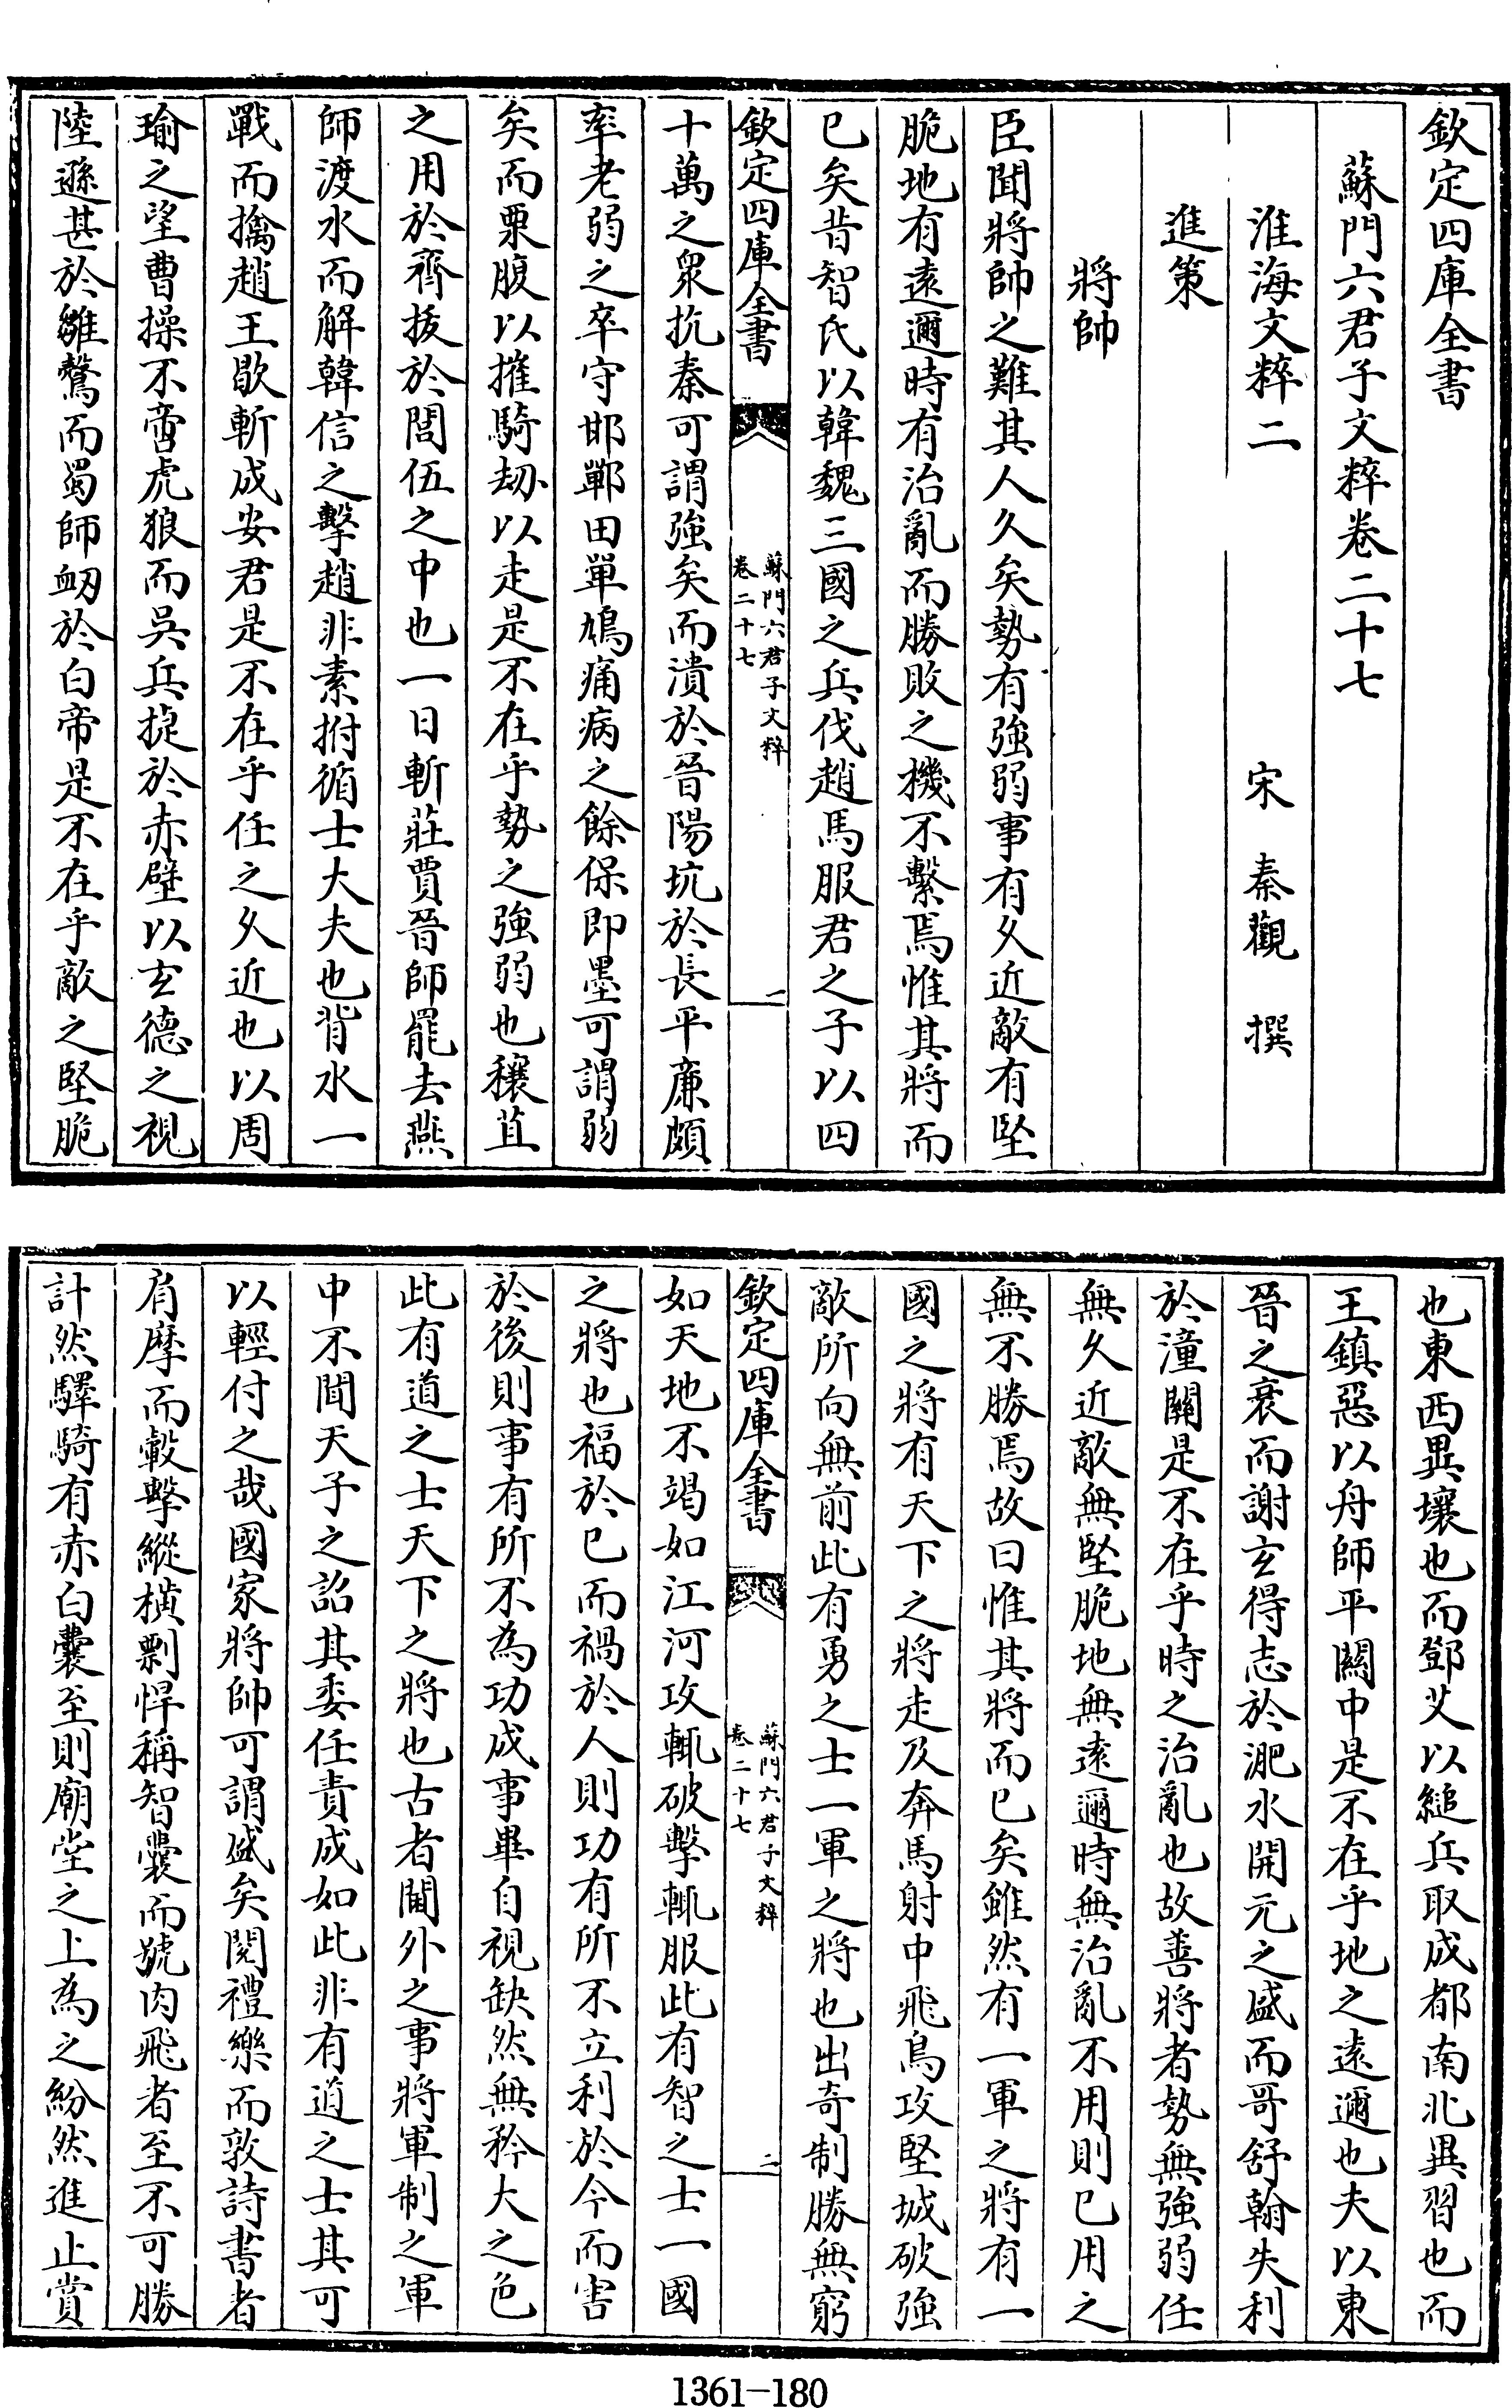 欽定四庫全書
蘇門六君子文粹卷二十七
淮海文粹二　宋　秦觀　撰
進策
將帥
臣聞將帥之難其人久矣勢有強弱事有久近敵有堅
脆地有遠邇時有治亂而勝敗之機不繫焉惟其將而
已矣昔智氏以韓魏三國之兵伐趙馬服君之子以四
欽定四庫全書
蘇門六君子文粹
卷二十七
一
十萬之衆抗秦可謂強矣而潰於晉陽坑於長平廉頗
率老弱之卒守邯鄲田單鳩痛病之餘保即墨可謂弱
矣而栗腹以摧騎劫以走是不在乎勢之強弱也穰苴
之用於齊拔於閭伍之中也一日斬莊賈晉師罷去燕
師渡水而解韓信之擊趙非素拊循士大夫也背水一
戰而擒趙王歇斬成安君是不在乎任之久近也以周
瑜之望曹操不啻虎狼而吳兵捷於赤壁以玄德之視
陸遜甚於雛鶩而蜀師衂於白帝是不在乎敵之堅脆
也東西異壤也而鄧艾以縋兵取成都南北異習也而
王鎮惡以舟師平關中是不在乎地之遠邇也夫以東
晉之衰而謝玄得志於淝水開元之盛而哥舒翰失利
於潼關是不在乎時之治亂也故善將者勢無強弱任
無久近敵無堅脆地無遠邇時無治亂不用則已用之
無不勝焉故曰惟其將而已矣雖然有一軍之將有一
國之將有天下之將走及奔馬射中飛鳥攻堅城破強
敵所向無前此有勇之士一軍之將也出奇制勝無窮
欽定四庫全書
蘇門六君子文粹
卷二十七
二
如天地不竭如江河攻輒破擊輒服此有智之士一國
之將也福於已而禍於人則功有所不立利於今而害
於後則事有所不為功成事畢自視缺然無矜大之色
此有道之士天下之將也古者閫外之事將軍制之軍
中不聞天子之詔其委任責成如此非有道之士其可
以輕付之哉國家將帥可謂盛矣閱禮樂而敦詩書者
肩摩而轂擊縱橫剽悍稱智囊而號肉飛者至不可勝
計然驛騎有赤白囊至則廟堂之上為之紛然進止賞
1361—180